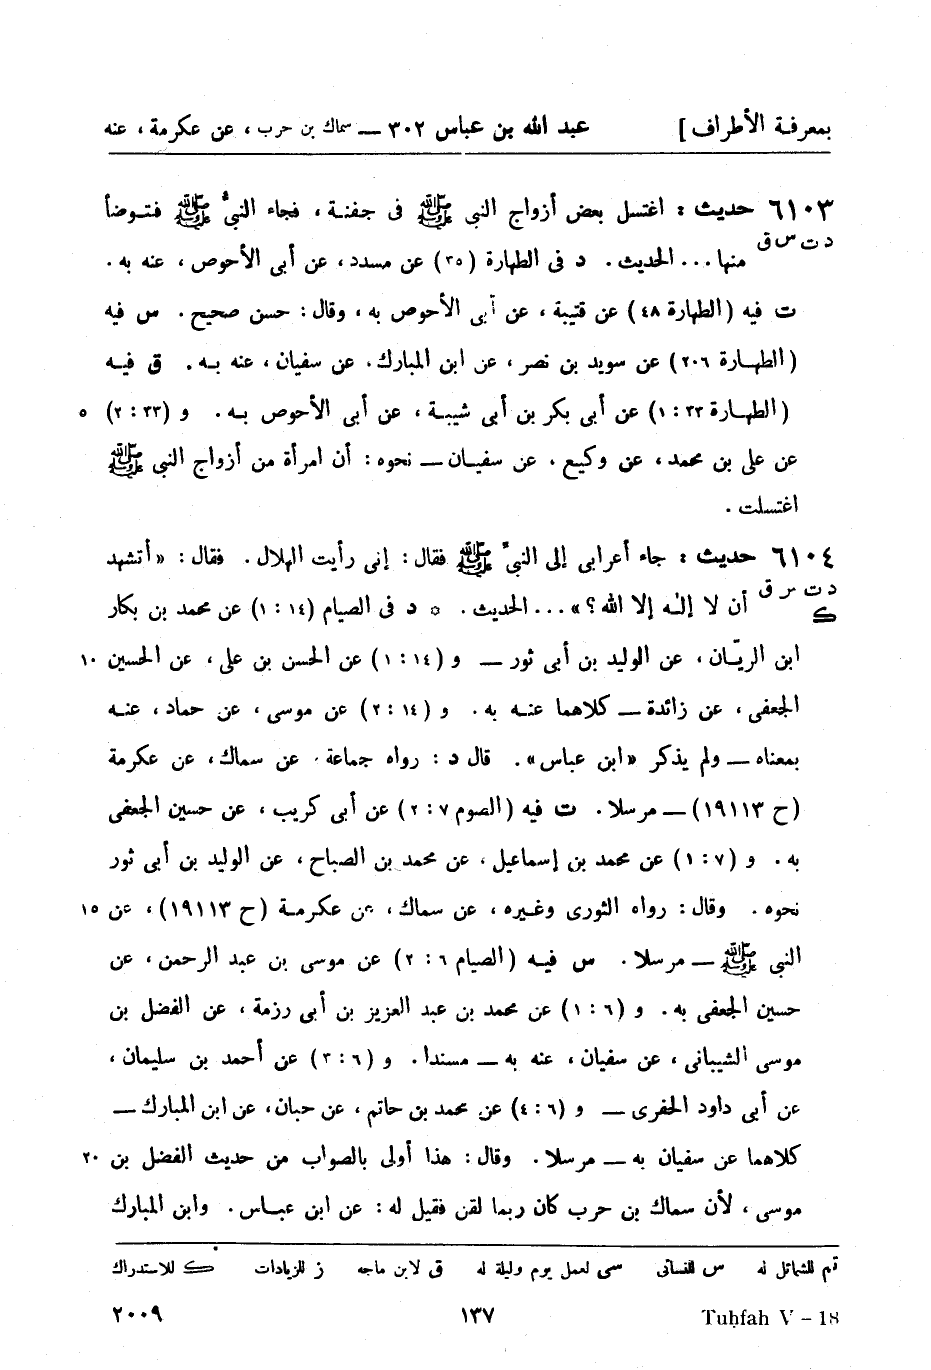 بمعرفة الأطراف] عبد الله بن عباس ٣٠٢ — سماك بن حرب، عن عكرمة، عنه
٦١٠٣ حديث: اغتسل بعض أزواج النبي ﷺ فى جفنة، فجاء النبيُّ ﷺ فتوضأ
د ت س ق منها... الحديث. د فى الطهارة (٣٥) عن مسدد، عن أبى الأحوص، عنه به.
ت فيه (الطهارة ٤٨) عن قتيبة، عن أبى الأحوص به، وقال: حسن صحيح. س فيه
(الطهارة ٢٠٦) عن سويد بن نصر، عن ابن المبارك، عن سفيان، عنه به. ق فيه
(الطهارة ٣٣: ١) عن أبى بكر بن أبى شيبة، عن أبى الأحوص به. و (٣٣: ٢) ٥
عن على بن محمد، عن وكيع، عن سفيان — نحوه: أن امرأة من أزواج النبى ﷺ
اغتسلت.
٦١٠٤ حديث: جاء أعرابى إلى النبىّ ﷺ فقال: إنى رأيت الهلال. فقال: «أتشهد
د ت س ق أن لا إله إلا الله؟»... الحديث. * د فى الصيام (١٤: ١) عن محمد بن بكار
ك
ابن الريّان، عن الوليد بن أبى ثور — و (١٤: ١) عن الحسن بن على، عن الحسين ١٠
الجعفى، عن زائدة — كلاهما عنه به. و (١٤: ٢) عن موسى، عن حماد، عنه
بمعناه — ولم يذكر «ابن عباس». قال د: رواه جماعة، عن سماك، عن عكرمة
(ح ١٩١١٣) — مرسلا. ت فيه (الصوم ٧: ٢) عن أبى كريب، عن حسين الجعفى
به. و (٧: ١) عن محمد بن إسماعيل، عن محمد بن الصباح، عن الوليد بن أبى ثور
نحوه. وقال: رواه الثورى وغيره، عن سماك، عن عكرمة (ح ١٩١١٣)، عن ١٥
النبى ﷺ — مرسلا. س فيه (الصيام ٦: ٢) عن موسى بن عبد الرحمن، عن
حسين الجعفى به. و (٦: ١) عن محمد بن عبد العزيز بن أبى رزمة، عن الفضل بن
موسى الشيبانى، عن سفيان، عنه به — مسندا. و (٦: ٣) عن أحمد بن سليمان،
عن أبى داود الحفرى — و (٦: ٤) عن محمد بن حاتم، عن حبان، عن ابن المبارك —
كلاهما عن سفيان به — مرسلا. وقال: هذا أولى بالصواب من حديث الفضل بن ٢٠
موسى، لأن سماك بن حرب كان ربما لقن فقيل له: عن ابن عباس. وابن المبارك
تم للشمائل له س للنسائى سى لعمل يوم وليلة له ق لابن ماجه ز للزيادات ك للاستدراك
Tuḥfah V – 18 ١٣٧ ٢٠٠٩